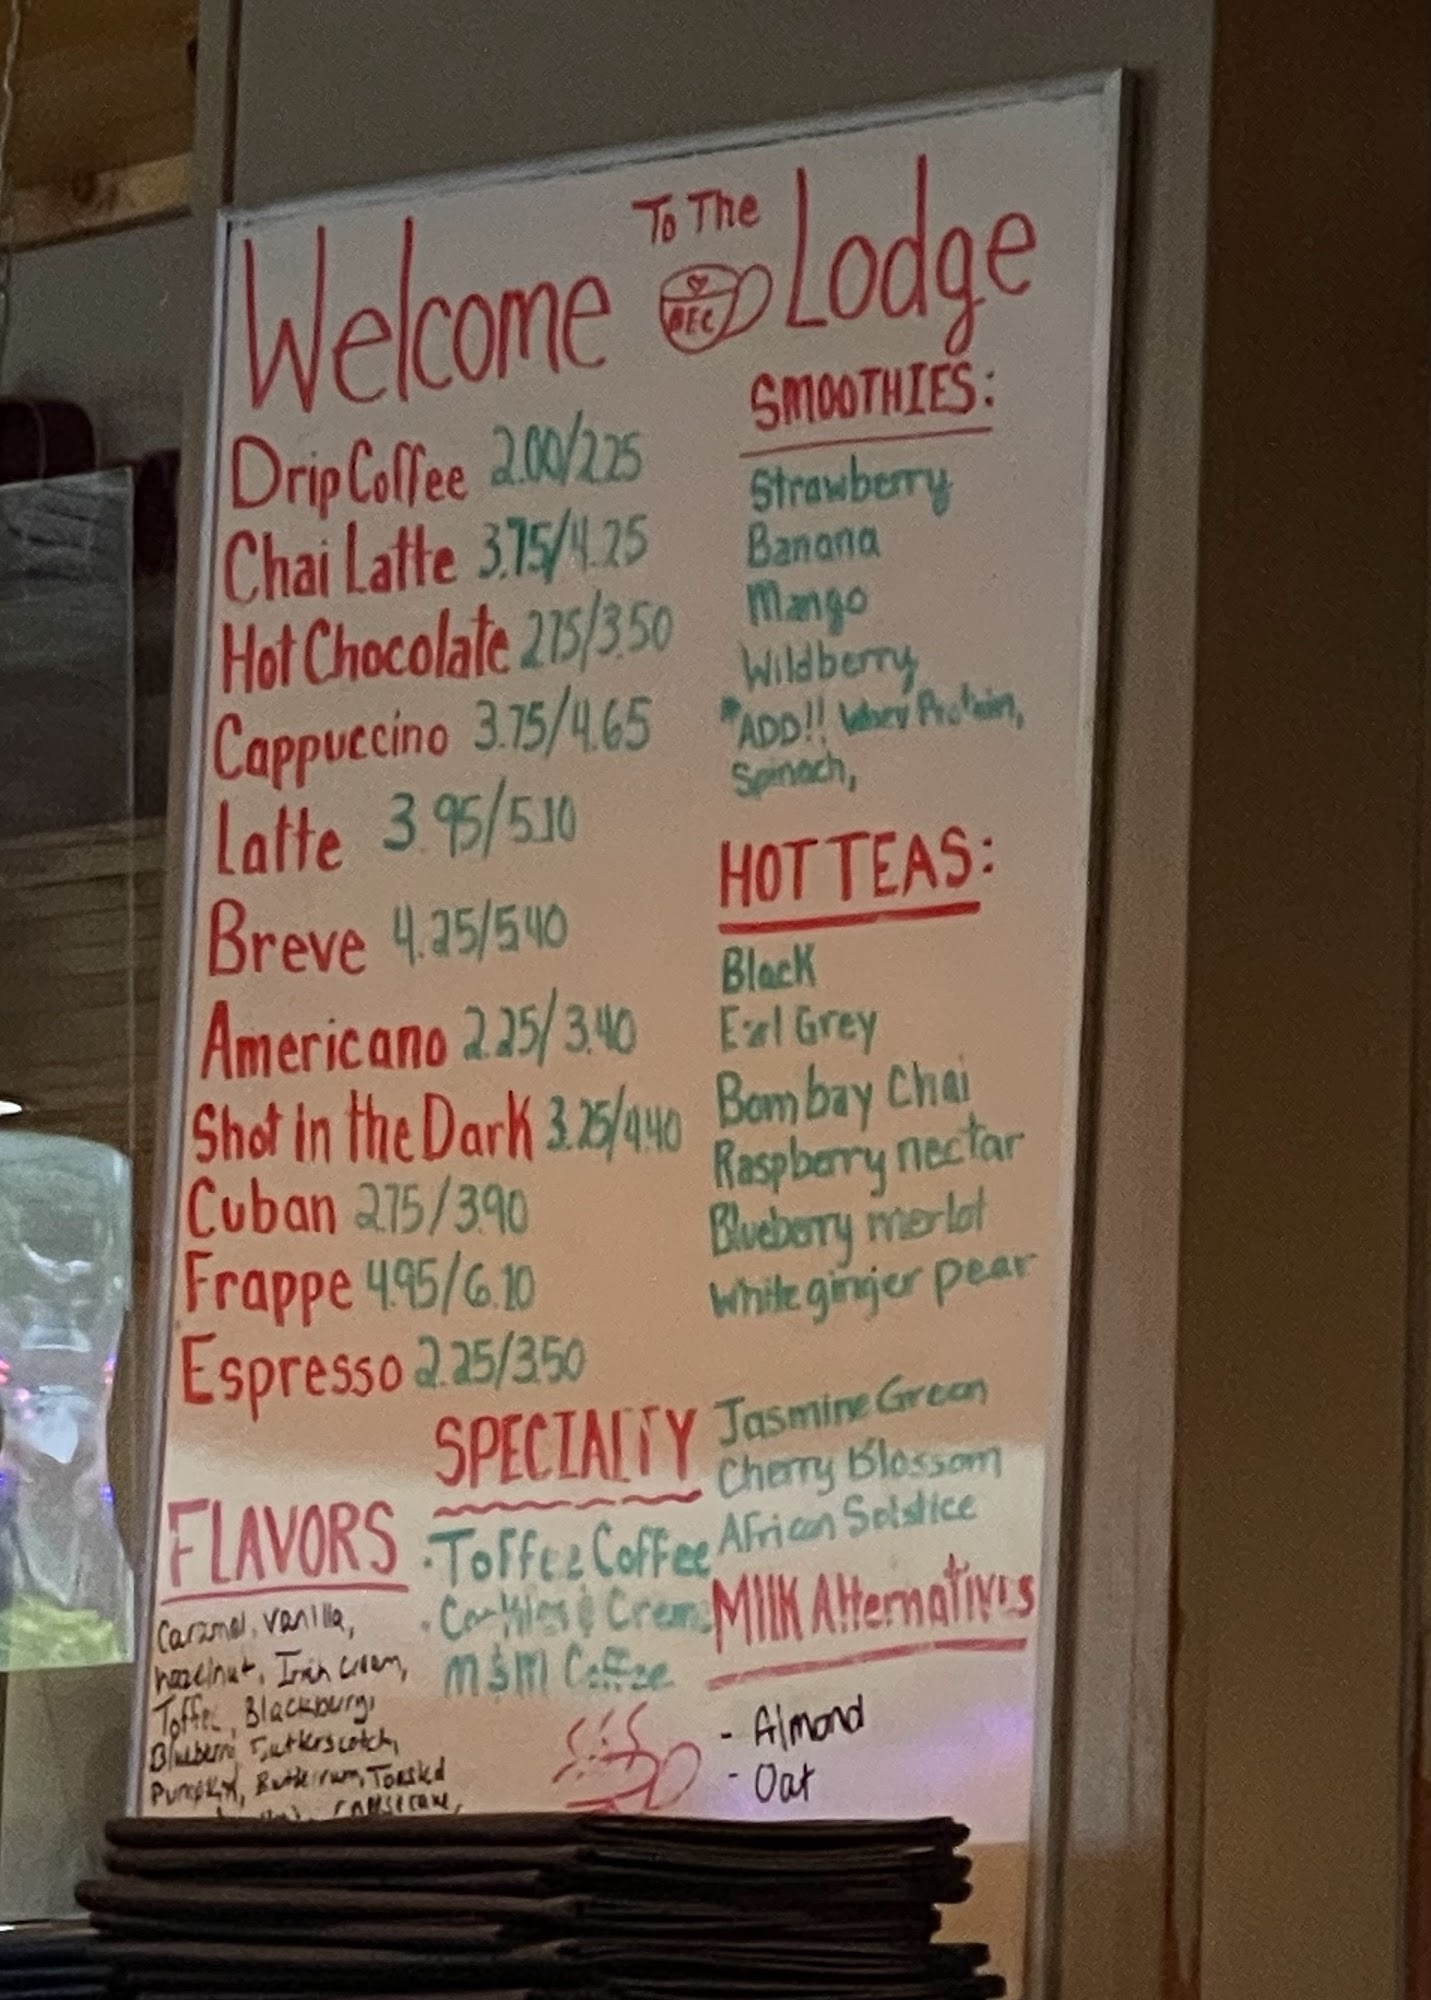 Welcome To The Lodge
BEC
Drip Coffee 2.00/2.25
Chai Latte 3.75/4.25
Hot Chocolate 2.75/3.50
Cappuccino 3.75/4.65
Latte 3.95/5.10
Breve 4.25/5.40
Americano 2.25/3.40
Shot in the Dark 3.25/4.40
Cuban 2.75/3.90
Frappe 4.95/6.10
Espresso 2.25/3.50
SMOOTHIES:
Strawberry
Banana
Mango
Wildberry
*ADD!! Whey Protein,
Spinach,
HOT TEAS:
Black
Earl Grey
Bombay Chai
Raspberry nectar
Blueberry merlot
White ginger pear
Jasmine Green
Cherry Blossom
African Solstice
MIlK Alternatives
- Almond
- Oat
SPECIALTY
· Toffee Coffee
· Cookies & Creme
M&M Coffee
FLAVORS
Caramel, Vanilla,
hazelnut, Irish cream,
Toffee, Blackburry,
Blueberry, Butterscotch,
Pumpkin, Butterrum, Toasted